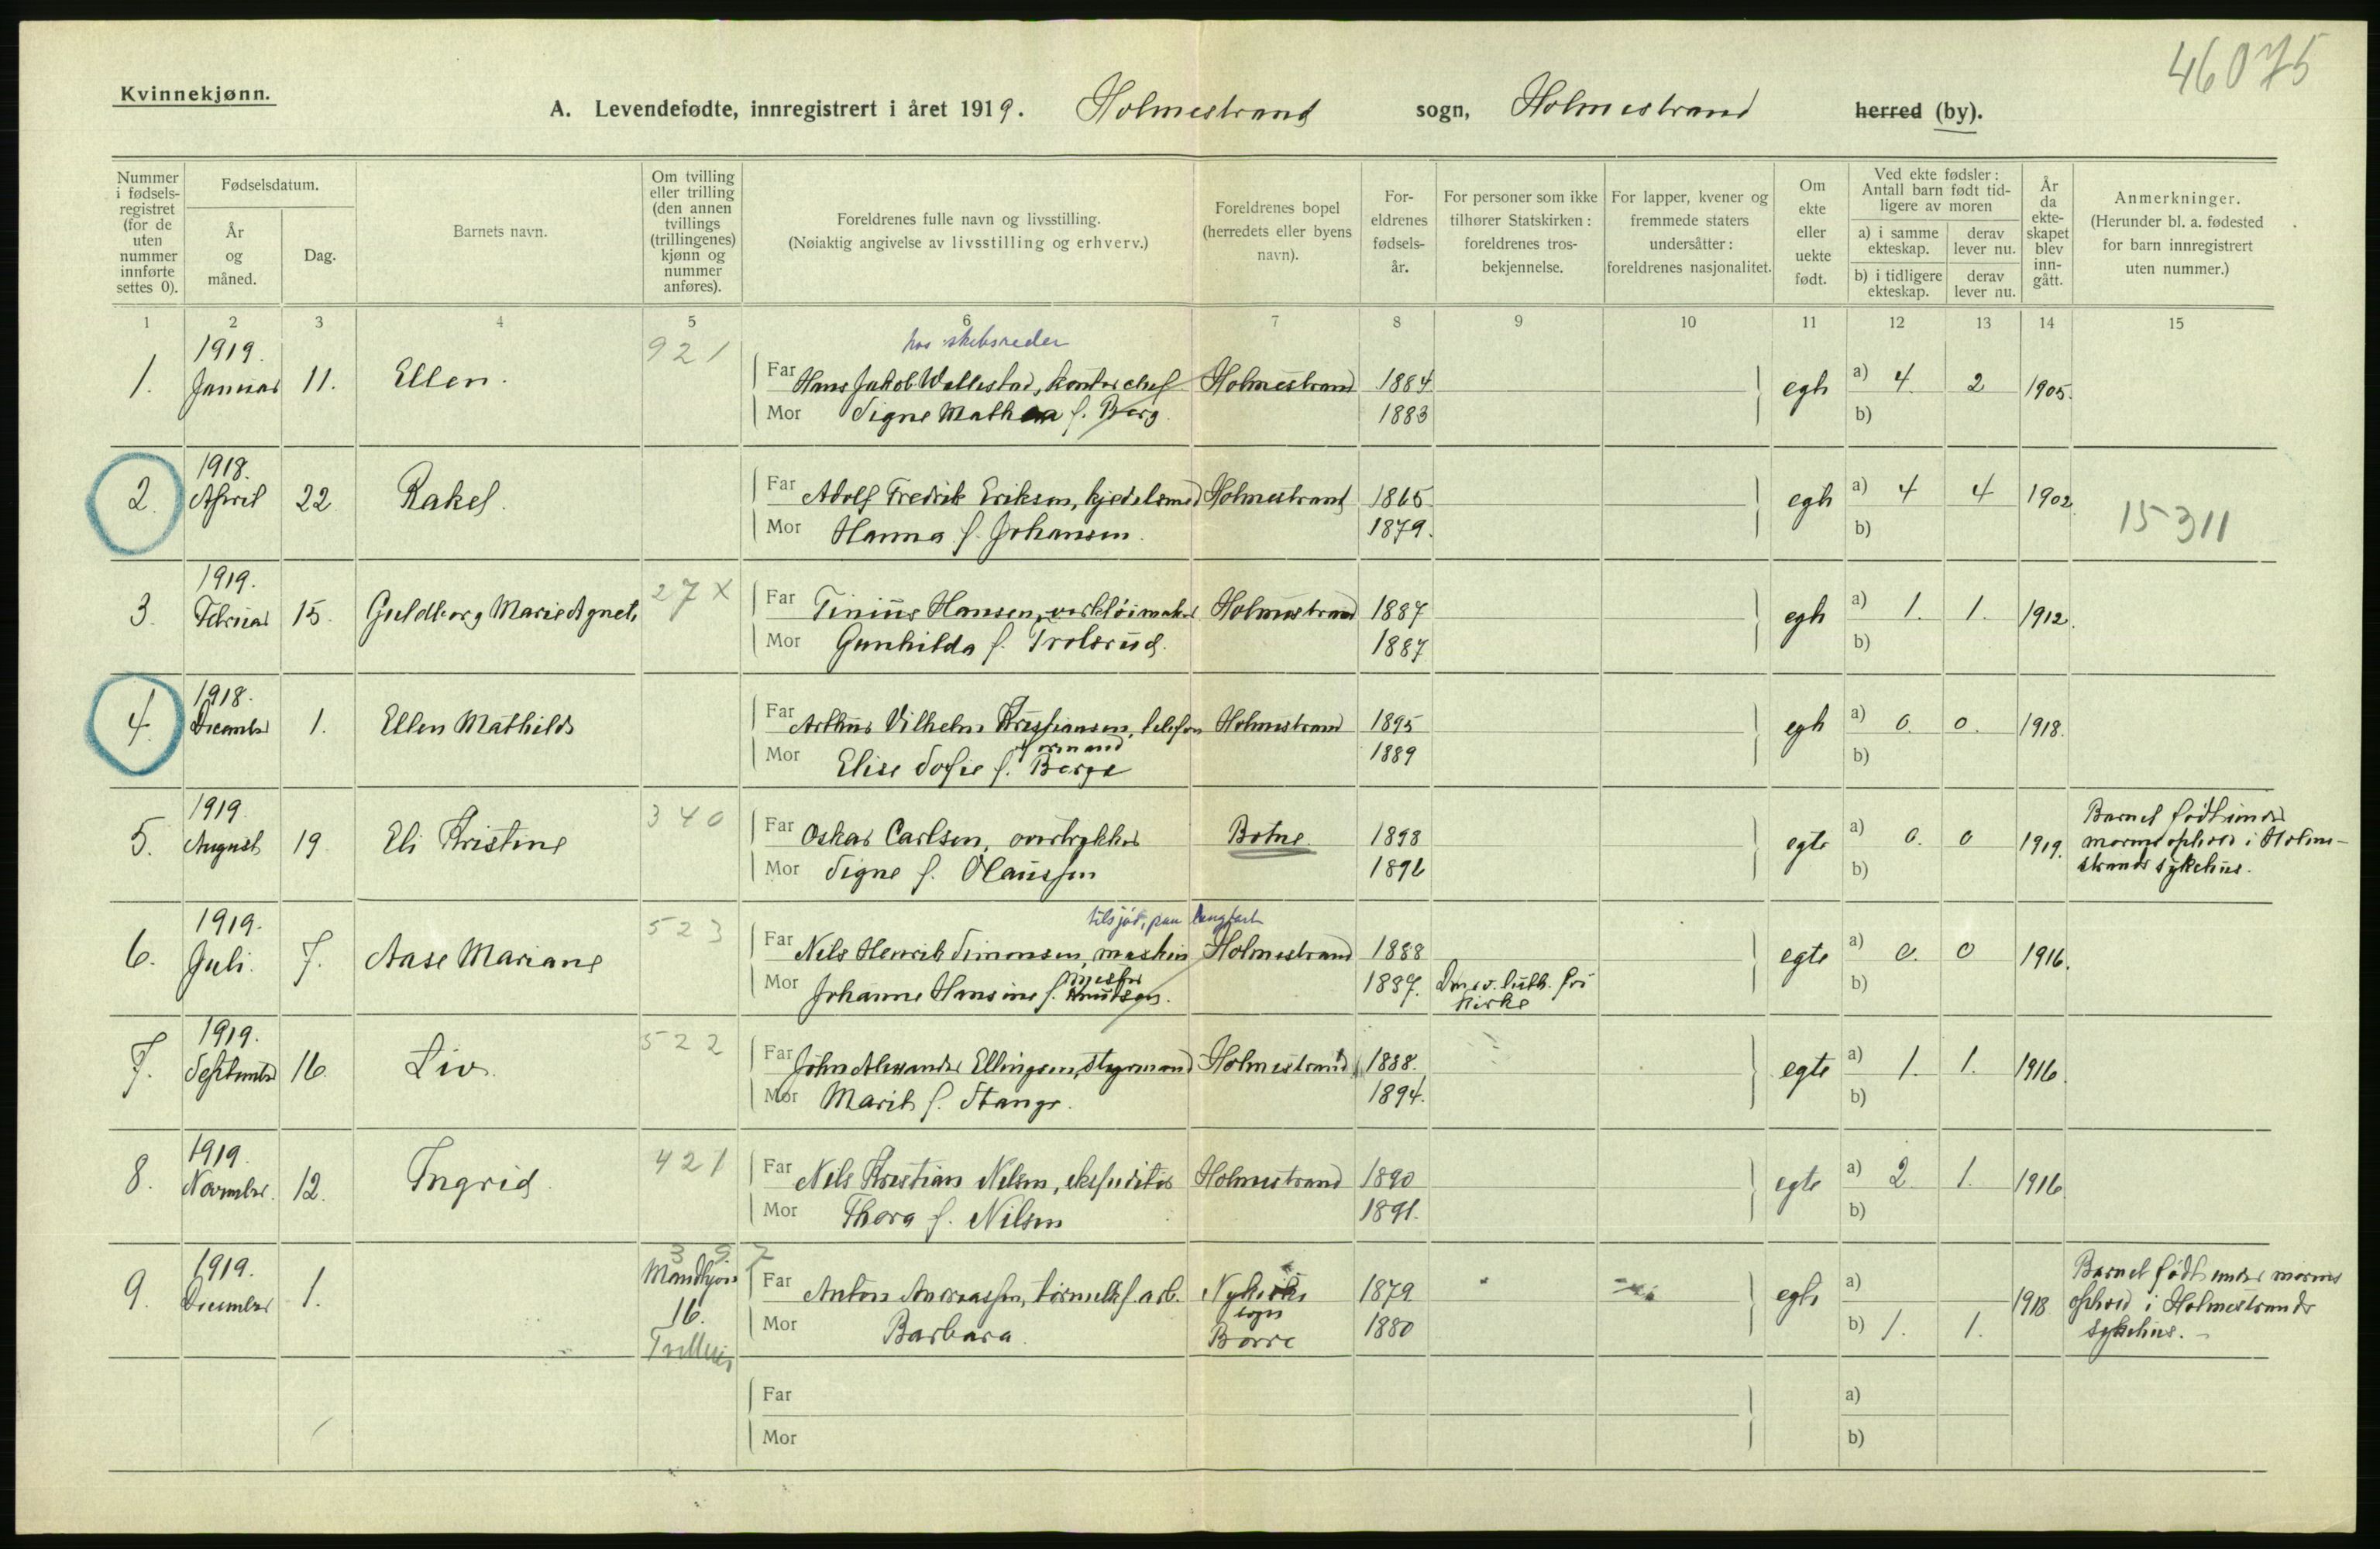 46075
Kvinnekjønn.
A. Levendefødte, innregistrert i året 1919. Holmestrand sogn, Holmestrand herred (by).
Nummer i fødsels-registret (for de uten nummer innførte settes 0).
Fødselsdatum.
År og måned.
Dag.
Barnets navn.
Om tvilling eller trilling (den annen tvillings (trillingenes) kjønn og nummer anføres).
Foreldrenes fulle navn og livsstilling.
(Nøiaktig angivelse av livsstilling og erhverv.)
Foreldrenes bopel (herredets eller byens navn).
For-eldrenes fødsels-år.
For personer som ikke tilhører Statskirken: foreldrenes tros-bekjennelse.
For lapper, kvener og fremmede staters undersåtter: foreldrenes nasjonalitet.
Om ekte eller uekte født.
Ved ekte fødsler: Antall barn født tid-ligere av moren
a) i samme ekteskap.
derav lever nu.
b) i tidligere ekteskap.
derav lever nu.
År da ekte-skapet blev inn-gått.
Anmerkninger.
(Herunder bl. a. fødested for barn innregistrert uten nummer.)
1 2 3 4 5 6 7 8 9 10 11 12 13 14 15
1919. 921 hos skibsreder
1. Januar 11. Ellen. Far Hans Jakob Wallestad, kontorchef Holmestrand 1884 egte a) 4 2 1905.
Mor Signe Mathea f. Berg 1883 b)
1918.
2. April 22 Rakel. Far Adolf Fredrik Eriksen, kjedelsmed Holmestrand 1865 egte a) 4 4 1902
Mor Hanna f. Johansen. 1879. b) 15311
1919. 27 x
3. Februar 15. Guldborg Marie Agnete Far Tinius Hansen, verktøimaker Holmestrand 1887 egte a) 1. 1. 1912.
Mor Gunhilda f. Trolsrud. 1887 b)
1918.
4. December 1. Ellen Mathilde Far Arthur Vilhelm Kristiansen, telefon Holmestrand 1895 egte a) 0. 0. 1918.
formand
Mor Elise Sofie f. Berge 1889 b)
1919. 340
5. August 19 Eli Kristine Far Oskar Carlsen, overtrykker Botne 1898 egte a) 0. 0 1919.
Mor Signe f. Olaussen 1892 b)
Barnet født under
morens ophold i Holme-
strands sykehus.
1919. 523 tilsjøs, paa langfart
6. Juli. 7. Aase Mariane Far Nels Henrik Simonsen, maskin Holmestrand 1888 egte a) 0. 0 1916.
mester
Mor Johanne Hansine f. Knutsen. 1887. Den ev. luth. fri b)
kirke
1919. 522
7. September 16. Liv Far John Alexander Ellingsen, styrmand Holmestrand 1888. egte a) 1. 1. 1916.
Mor Marit f. Stange. 1894. b)
1919. 421
8. November 12. Ingrid Far Nils Kristian Nilsen, ekspeditør Holmestrand 1890 egte a) 2 1. 1916
Mor Thora f. Nilsen 1891. b)
1919. 397
9. December 1. Mandkjøn Far Anton Andreassen, tørmelkf. arb. Nykirke 1879 egte a) 1918
16. sogn
Mor Barbara Borre 1880 b) 1. 1.
Barnet født under morens
ophold i Holmestrands
sykehus.
Far a)
Mor b)